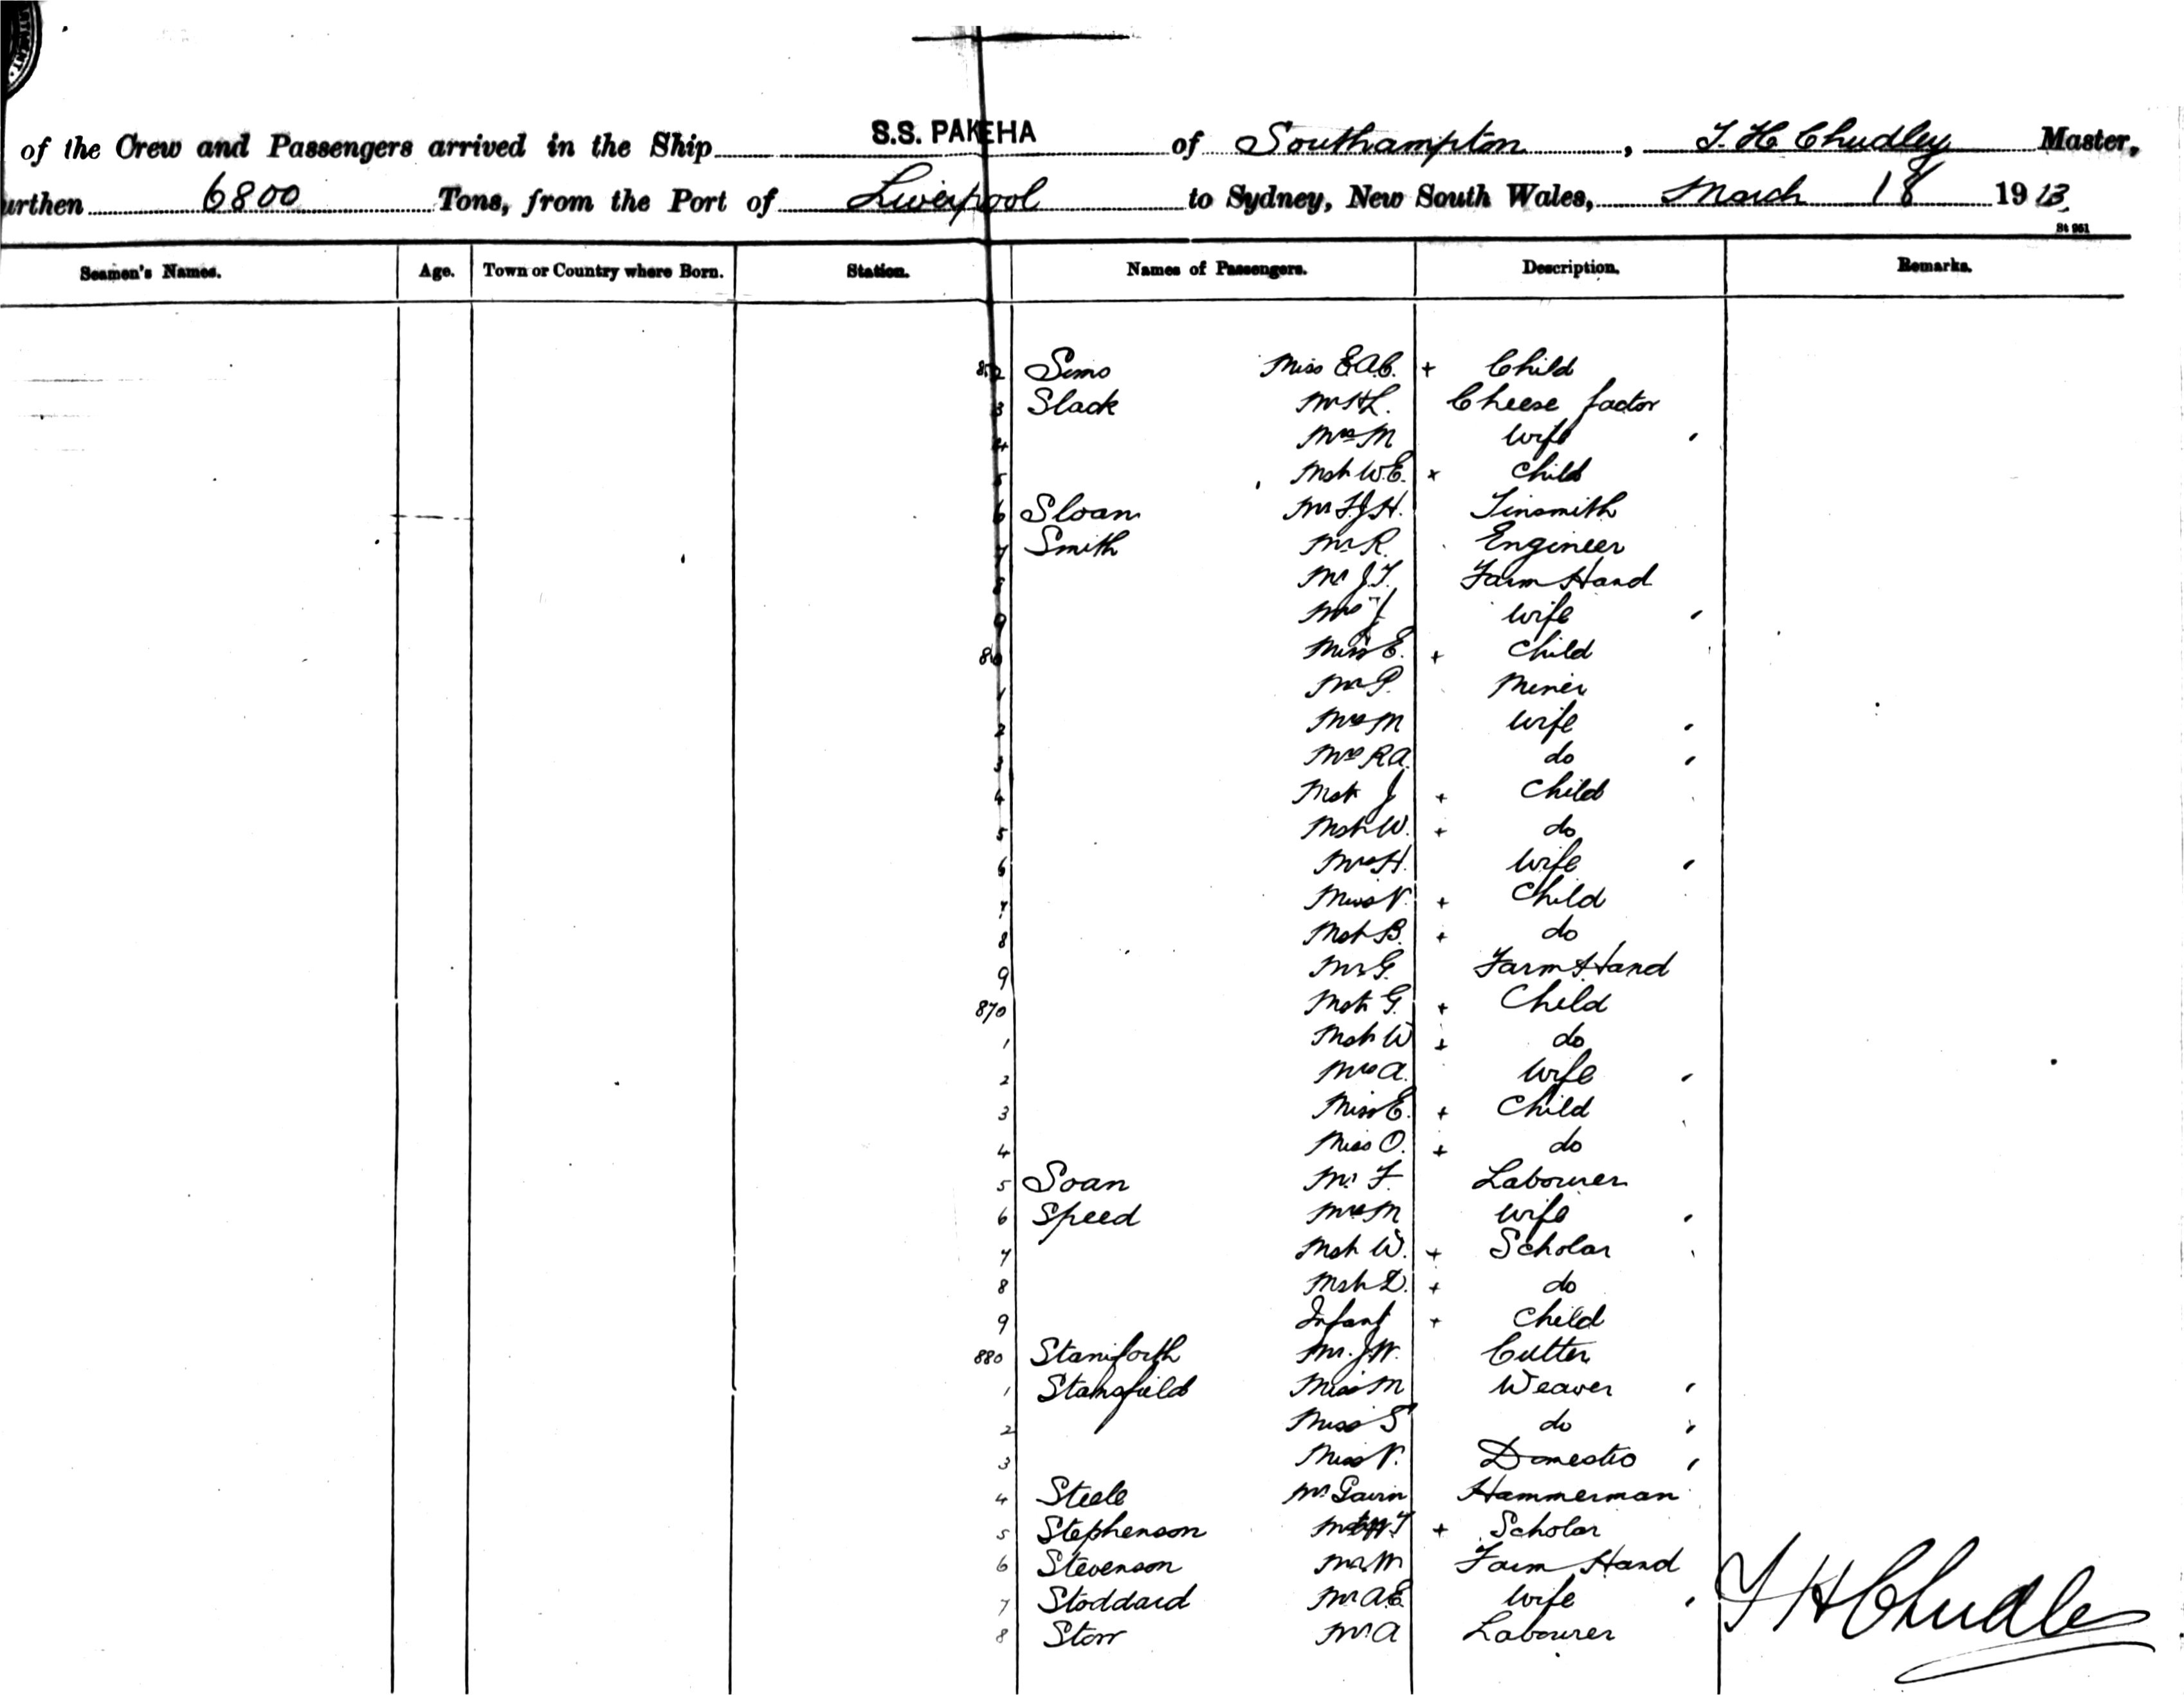 of the Crew and Passengers arrived in the Ship S.S. PAKEHA of Southampton, T. H Chudley Master,
urthen 6800 Tons, from the Port of Liverpool to Sydney, New South Wales, March 18 1913.
St 961
Seamen's Names. Age. Town or Country where Born. Station. Names of Passengers. Description. Remarks.
852 Sims Miss E.A.C. + Child
3 Slack Mr H.L. Cheese factor
4 Mrs M wife
5 Mstr W.E. + Child
6 Sloan Mr T.J.H. Tinsmith
7 Smith Mr R. Engineer
8 Mr J.T. Farm Hand
9 Mrs J wife
860 Miss E. + Child
1 Mr P. Miner
2 Mrs M wife
3 Mrs R.A. do
4 Mstr J + Child
5 Mstr W. + do
6 Mrs H. wife
7 Miss V. + Child
8 Mstr B. + do
9 Mr G. Farm Hand
870 Mstr G. + Child
1 Mstr W + do
2 Mrs A. wife
3 Miss E. + Child
4 Miss O. + do
5 Soan Mr F. Labourer
6 Speed Mrs M wife
7 Mstr W. + Scholar
8 Mstr D. + do
9 Infant + Child
880 Staniforth Mr. J.W. Cutter
1 Stansfield Miss M Weaver
2 Miss S do
3 Miss V. Domestic
4 Steele Mr Gavin Hammerman
5 Stephenson + Scholar
6 Stevenson Mr W Farm Hand
7 Stoddard A.E. wife
8 Storr Mr A Labourer
T H Chudley